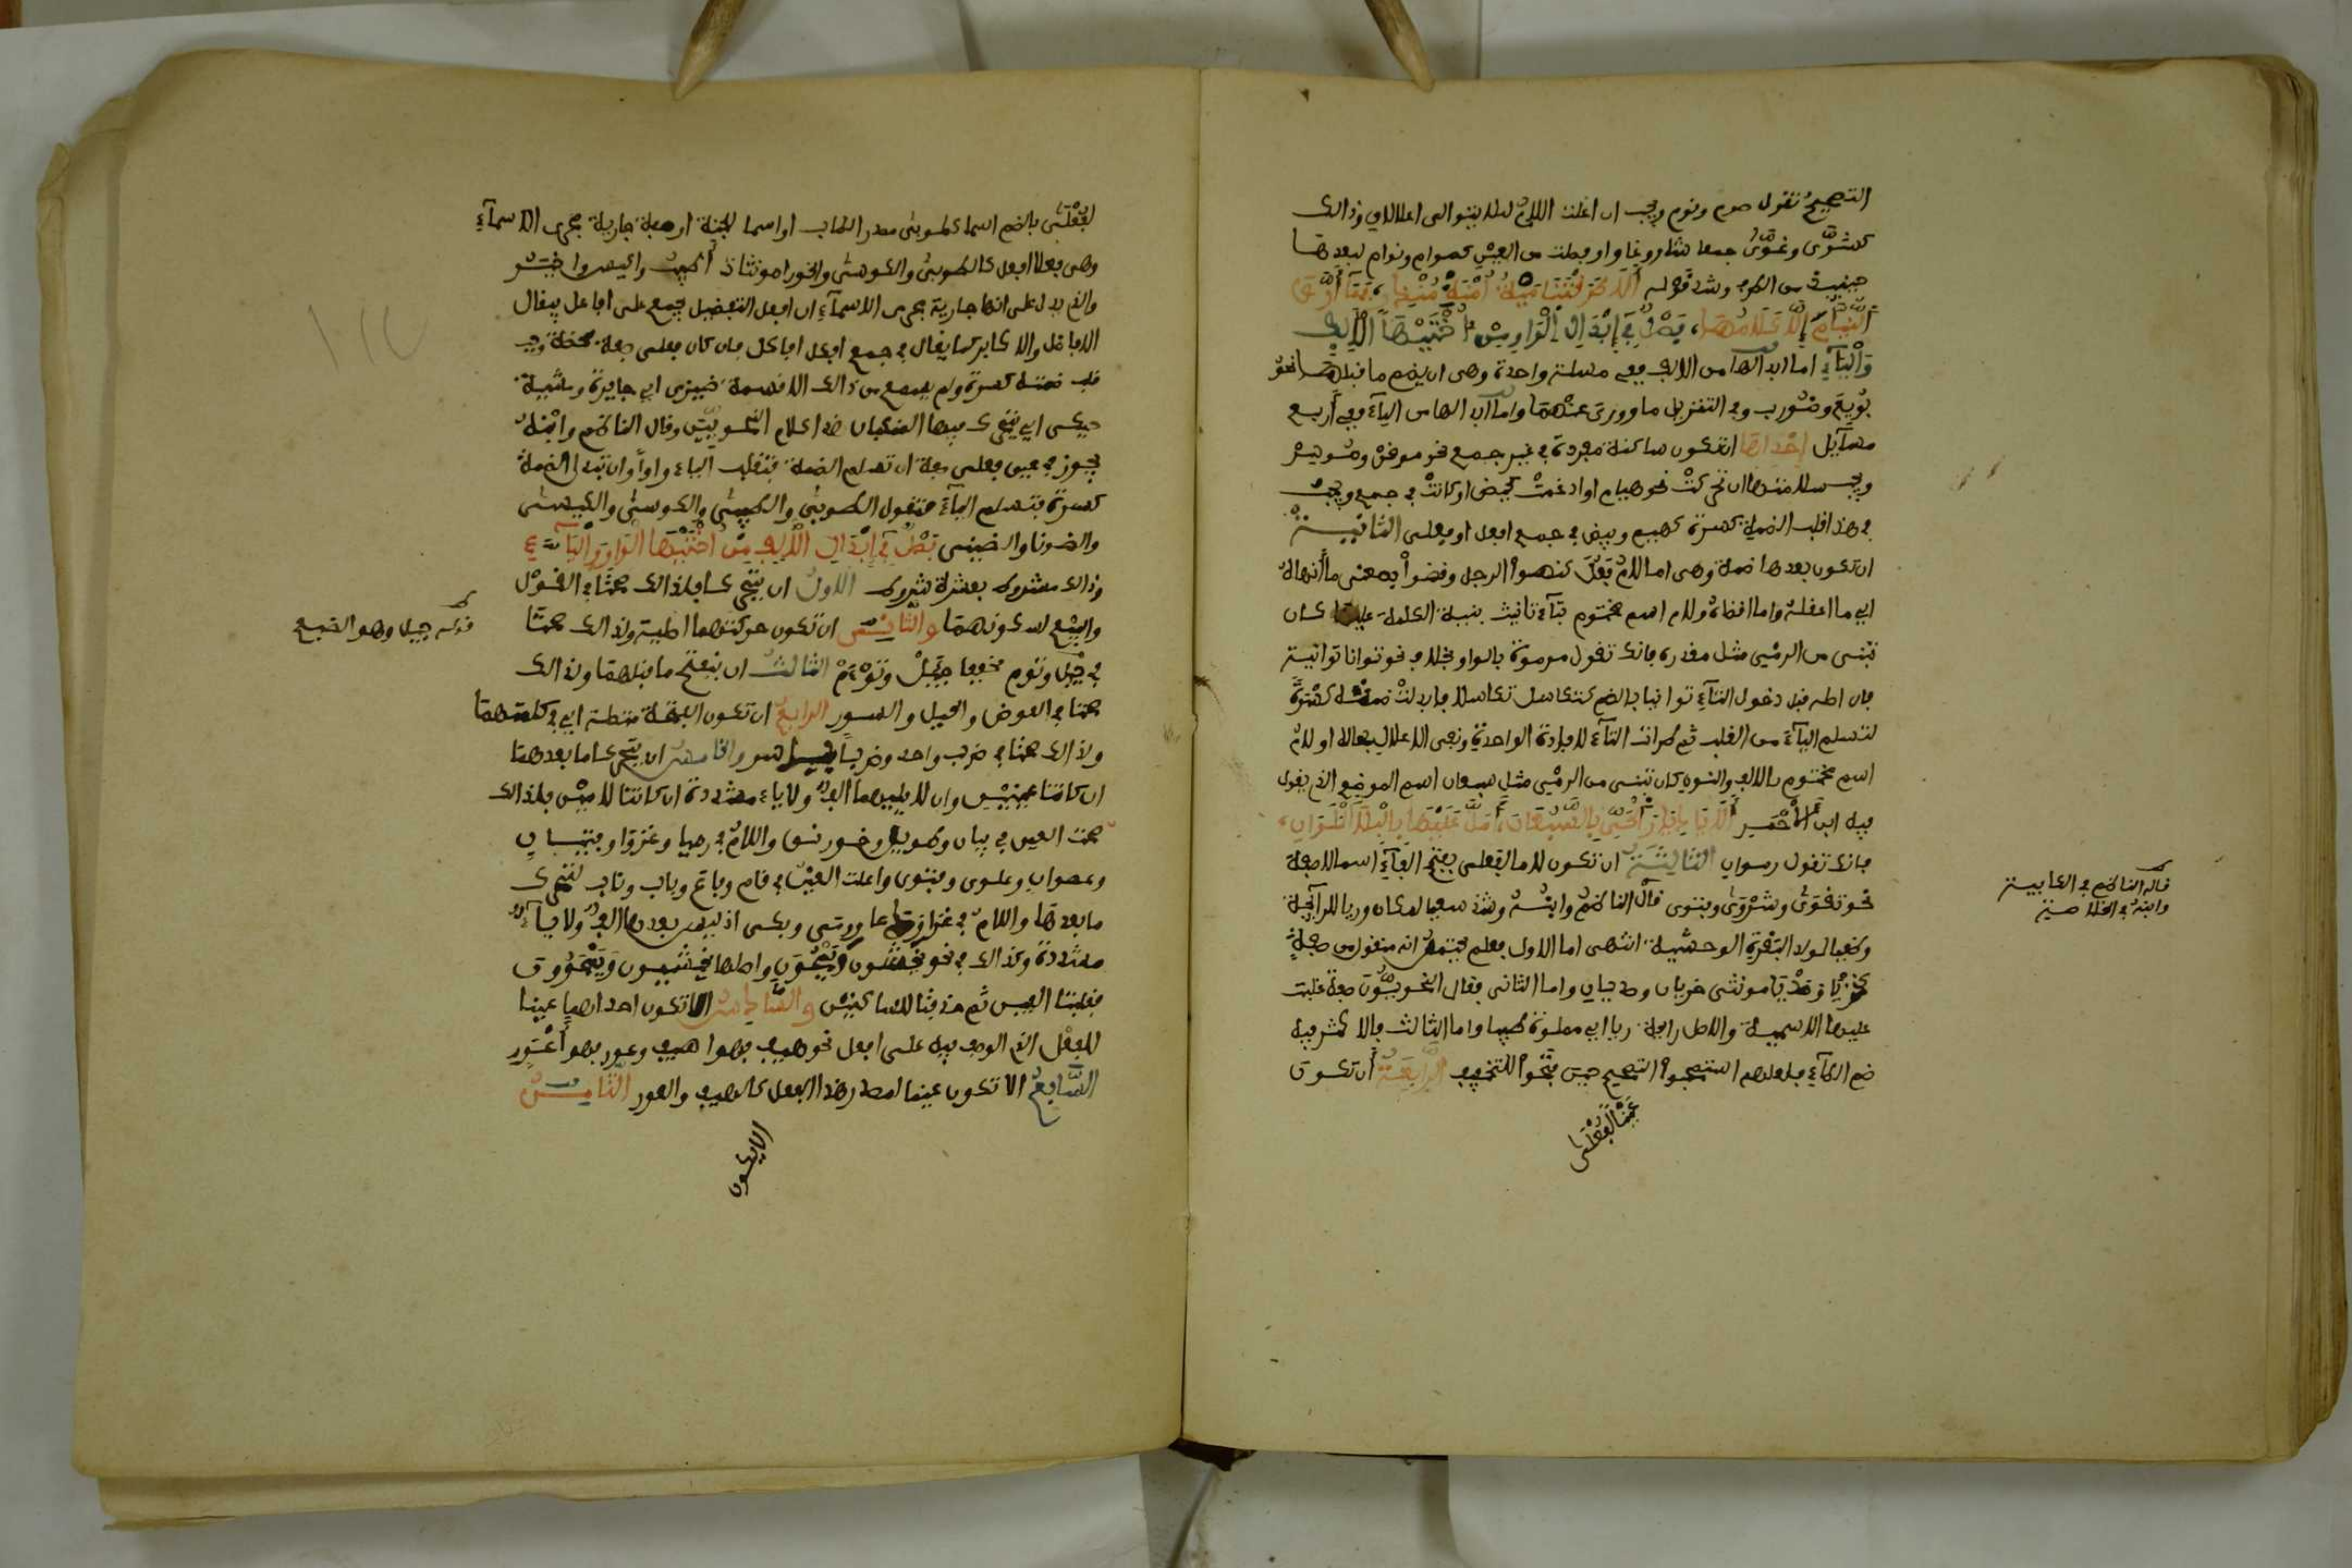 التصحيح تقول صوم ونوم ويجب ان اعلت اللام ليلا يتوالى اعلالان وذالك
كشوّى وغوّى جمعا شاو وغاو او فصلت من العين كصوام ونوام لبعدها
حينيذ من الطرف وشذ قوله أَلَا طَرَقَتْنَا مَيَّةُ ابْنَةُ مُنْذِرٍ، فَمَا أَرَّقَ
النُّيَّامَ إِلَّا كَلَامُهَا، فَصْلٌ فِي إِبْدَالِ الْوَاوِ مِنْ أُخْتَيْهَا الْأَلِفِ
وَالْيَاءِ اما ابدالها من الالف ففي مسلة واحدة وهي ان يضم ما قبلها نحو
بُويِعَ وضُورِب وفي التنزيل ما وورى عنهما واما ابدالها من الياء ففي أربع
مسآيل إحْداها ان تكون ساكنة مفردة في غير جمع نحو موقن وموسر
ويجب سلامتها ان تحركتْ نحو هيام او ادغمتْ كحيض او كانتْ في جمع ويجب
في هذا قلب الضمة كسرة كهيم وبيض في جمع افعل او فعلى الثانيـة
ان تكون بعدها ضمة وهى اما لامُ فَعُلَ كنهوا الرجل وقضوا بمعنى ما أنهاهُ
اي ما اعقله واما اقضاهُ ولام اسم مختوم بتآء تانيث بنيت الكلمة عليها كان
تبنى من الرمْي مثل مقدرة فانك تقول مرموة بالواو بخلاف نحو توانا توانية
فان اصله قبل دخول التآء توانيا بالضم كتكاسل تكاسلا فابدلتْ ضمته كسْرةً
لتسلم اليآء من القلب ثم طرات التآء لافادة الواحدة وبقى الاعلال بحاله او لامُ
اسم مختوم بالالف والنون كان تبنى من الرمْي مثل سبعان اسم الموضع الذ يقول
فيه ابن الأحْمَر أَلَا يَا دِيَارَ الْحَيِّ بِالسَّبُعَانِ، أَمَلَّ عَلَيْهَا بِالْبِلَى الْمَلَوَانِ،
فانك تقول رموان الثالثَة ان تكون لاما لفعلى بفتح الفآء اسما لا صفة
نحو تقوى وشروى وفتوى قال الناظم وابنُه وشذ سعيا لمكان وريا للرآيحة
وطغيا لولد البقرة الوحشية انتهى اما الاول فعلم فيحتمل انه منقول من صفة
كخزيا وصدْيا مونثى خزيان وصديان واما الثانى فقال النحويون صفة غلبت
عليها الاسمية والاصل رايحة ريا اي مملوة طيبا واما الثالث فالاكثر فيه
ضم الطآء فلعلهم استصحبوا التصحيح حين فتحوا للتخفيف الرابعة أن تكون
عيْنًا لفُعْلى
قاله الناظم في الكافية
وابنهُ في الخلاصة
لفُعْلَى بالضم اسما كطوبى مصدر الطاب او اسما للجنة او صفة جارية مجرى الاسمآء
وهى فعلا افعل كالطوبى والكوسى والخورا مونثات أطيب واكيس واخيـر
والذ يدل على انها جارية مجرى الاسمآء ان افعل التفضيل يجمع على افاعل فيقال
الافاضل والاكابر كما يقال في جمع افكل افاكل فان كان فعلى صفة محضة وجب
قلب ضمته كسرة ولم يسمع من ذالك الا قسمة ضيزى اي جايرة ومشية
حيكى اي يتحرك فيها المنكبان هذا كلام النحويين وقال الناظم وابنهُ
يجوز في عين فعلى صفة ان تسلم الضمة فتقلب الياء واواً وان تبدل الضمة
كسرة فتسلم اليآء فتقول الطوبى والطيبى والكوسى والكيسى
والضوقا والضيقى فَصْلٌ فِي إِبْدَالِ الْأَلِفِ مِنْ أُخْتَيْهَا الْوَاوِ وَالْيَاءِ
وذالك مشروط بعشرة شروط الاول ان يتحركا فلذالك صحتا في القوْل
والبيْع لسكونهما والثانى ان تكون حركتهما اصلية ولذالك صحتا
في جيَل وتوَم مخففى جيْئَل وتوْءَم الثالث ان ينفتح ما قبلهما ولذالك
صحتا في العوض والحيل والسور الرابع ان تكون الفتحة متصلة اي في كلمتهما
ولذالك صحتا في ضرب واحد وضرب ياسر والخامس ان يتحرك ما بعدهما
ان كانتا عينين وان لا يليهما الف ولا ياء مشددة ان كانتا لامين فلذالك
صحت العين في بيان وطويل وخورنق واللام في رميا وغزوا وفتيان
وعصوان وعلوى وفتوى واعلت العين في قام وباع وباب وناب لتحرك
ما بعدها واللام في غزا ودعا ورمى وبكى اذ ليس بعدها الف ولا يآء
مشددة وكذالك في نحو يخشون ويمحون واصلها يخشيون ويمحوون
فقلبتا الفين ثم حذفتا للساكنين والسادس الا تكون احداهما عينا
لفعِل الذ الوصف فيه على افعل نحو هيف فهو اهيف وعور فهو أعْور
السابع الا تكون عينا لمصدر هذا الفعل كالهيف والعور الثامن
الا يكون
قوله جيل وهو الضبع